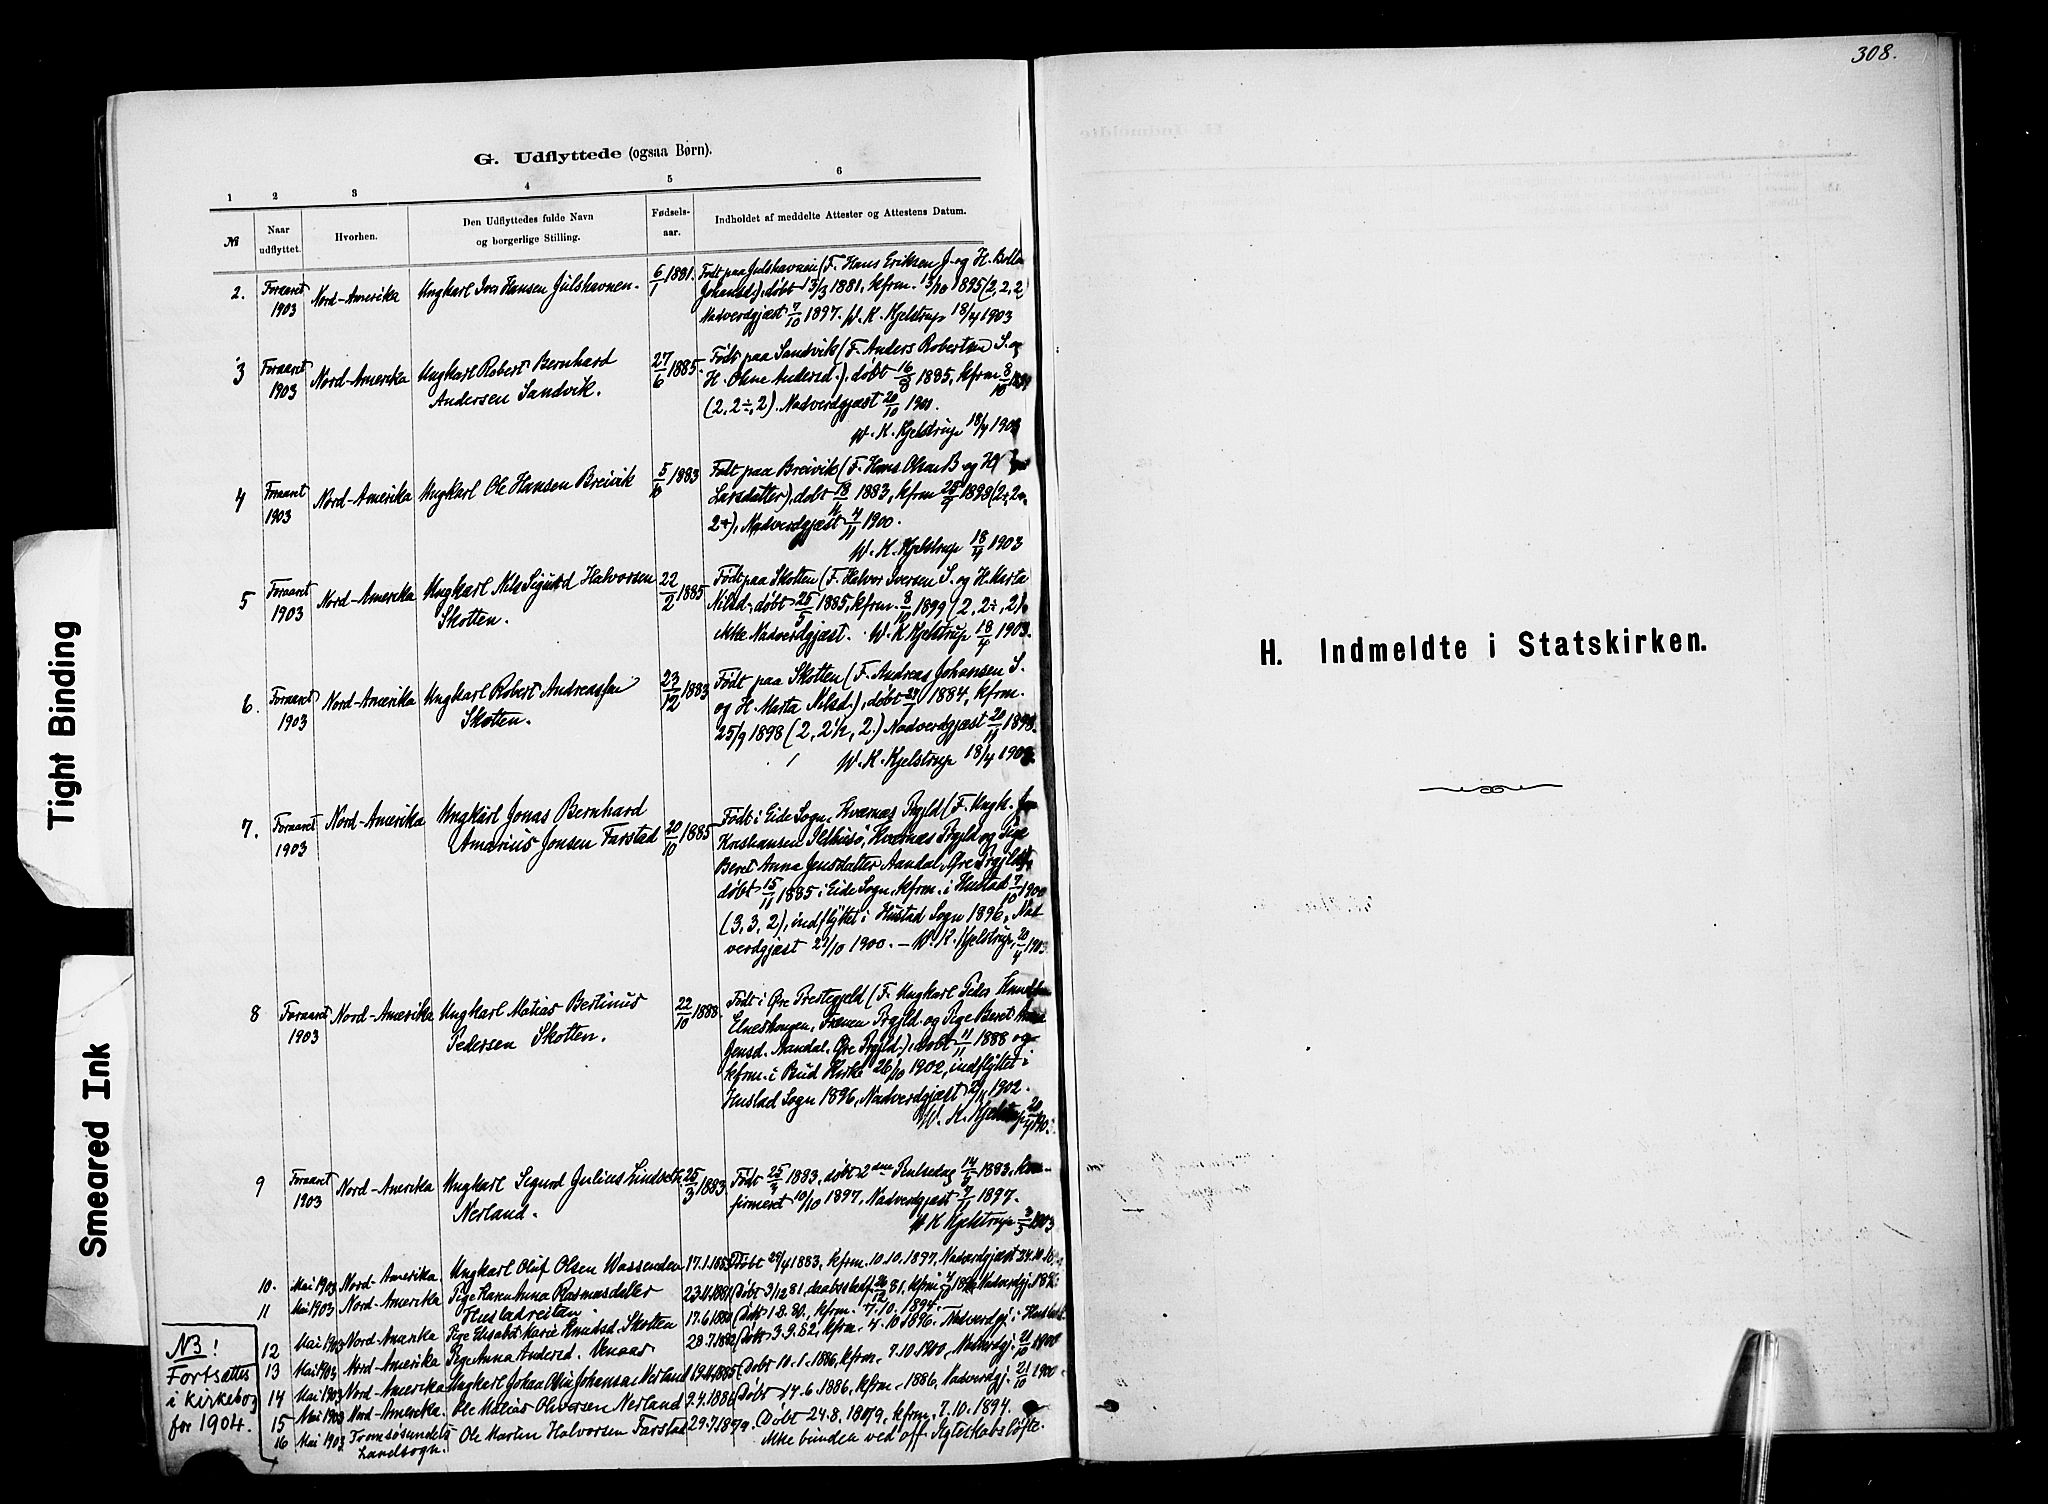 308.
G. Udflyttede (ogsaa Børn).
1 2 3 4 5 6
№ Naar udflyttet. Hvorhen. Den Udflyttedes fulde Navn og borgerlige Stilling. Fødselsaar. Indholdet af meddelte Attester og Attestens Datum.
2. Foraaret 1903 Nord-Amerika Ungkarl Iver Hansen Julshavnen. 6/1 1881. Født paa Julshavnen (F. Hans Eriksen J. og H.
Johansd.), døbt 13/3 1881, kfrm. 13/10 1895 (2, 2, 2)
Nadverdgjæst 7/10 1897. W. K. Kjelstrup 18/4 1903
3 Foraaret 1903 Nord-Amerika Ungkarl Robert Bernhard 27/6 1885. Født paa Sandvik (F. Anders Robertsen S. og
Andersen Sandvik. H. Oline Andersd.), døbt 16/8 1885, kfrm 8/10
(2, 2÷, 2). Nadverdgjæst 20/10 1901.
W. K. Kjelstrup 18/4 1903
4 Foraaret 1903 Nord-Amerika Ungkarl Ole Hansen Breivik 5/10 1883 Født paa Breivik (F. Hans Olsen B og H
Larsdatter), døbt 18/11 1883, kfrm 25/9 1898 (2÷, 2÷,
2÷), Nadverdgjæst 4/11 1900.
W. K. Kjelstrup 18/4 1903
5 Foraaret 1903 Nord-Amerika Ungkarl Nils Sigurd Halvorsen 22/2 1885 Født paa Skotten (F. Halvor Iversen S. og H. Marta
Skotten. Nilsd., døbt 25/5 1885, kfrm. 8/10 1899 (2, 2÷, 2),
ikke Nadverdgjæst. W. K Kjelstrup 18/4 1903.
6. Foraaret 1903 Nord-Amerika Ungkarl Robert Andreassen 23/12 1883 Født paa Skotten (F. Andreas Johansen S.
Skotten. og H. Marta Nilsd.), døbt 1884, kfrm.
25/9 1898 (2, 2½, 2.) Nadverdgjæst 20/11 1898.
W. K. Kjelstrup 18/4 1903.
7. Foraaret 1903 Nord-Amerika Ungkarl Jonas Bernhard 20/10 1885 Født i Eide Sogn, Kværnæs Prgjld (F. Ungk.
Amarius Jonsen Farstad Kværnæs Prgjld og Pige
Beret Anna Jensdatter Aandal, Øre Prgjld),
døbt 15/11 1885 i Eide Sogn, kfrm. i Hustad 7/10 1900
(3, 3, 2), indflyttet i Hustad Sogn 1896, Nad-
verdgjæst 21/10 1900. – W. K. Kjelstrup, 20/4 1903
8 Foraaret 1903 Nord-Amerika Ungkarl Matias Bertinus 22/10 1888. Født i Øre Prestegjeld (F. Ungkarl Peder Knudsen
Pedersen Skotten. Elneshaugen, Frænen Prgjld. og Pige Beret Anna
Jensd. Aandal, Øre Prgjld.), døbt 11/11 1888 og
kfrm. i Bud Kirke 26/10 1902, indflyttet i
Hustad Sogn 1896, Nadverdgjæst 1902.
W. K. Kjelstrup 20/4 1903.
9 Foraaret 1903 Nord-Amerika Ungkarl Sigurd Julius Lindseth 25/3 1883 Født 25/3 1883, døbt 2den Pintsedag 14/5 1883, kon-
Nerland. firmeret 10/10 1897, Nadverdgjæst 7/11 1897.
W K Kjelstrup 3/5 1903
10. Mai 1903 Nord-Amerika. Ungkarl Oluf Olsen Vassenden 17.1.1883 Døbt 29/4 1883, kfrm. 10.10.1897, Nadverdgjæst 24.10.
11 Mai 1903 Nord-Amerika Pige Karen Anna Rasmusdatter 23.11.1881 (Døbt
Hustadreitan.
12 Mai 1903 Nord-Amerika Pige Elisabet Marie Knudsd. Skotten 17.6.1880 (Døbt 1.8.80, kfrm. 7.10.1894.
13 Mai 1903 Nord-Amerika Pige Anna Andersd. Venaas 28.7.1882 (Døbt 3.9.82, kfrm. 4.10 1896. Nadverdgj. i
14 Mai 1903 Nord-Amerika Ungkarl Johan Johansen Nerland (Døbt 10.1.1886, kfrm. 7.10 1900, Nadverdgj. 21/10 1900
15 Mai 1903 Nord-Amerika. Ole Matias Oliversen Nerland 2.4.1886 (Døbt 14.6.1886, kfrm. 1886, Nadverdgj. 21/10 1900
16 Mai 1903 Tromsøsundets Landsogn. Ole Martin Halvorsen Farstad 29.7.1879. (Døbt 24.8.1879, kfrm. 7.10.1894.
Ikke bunden ved off. Ægteskabsløfte.
NB!
Fortsættes
i Kirkebog
for 1904.
H. Indmeldte i Statskirken.
Tight Binding
Smeared Ink